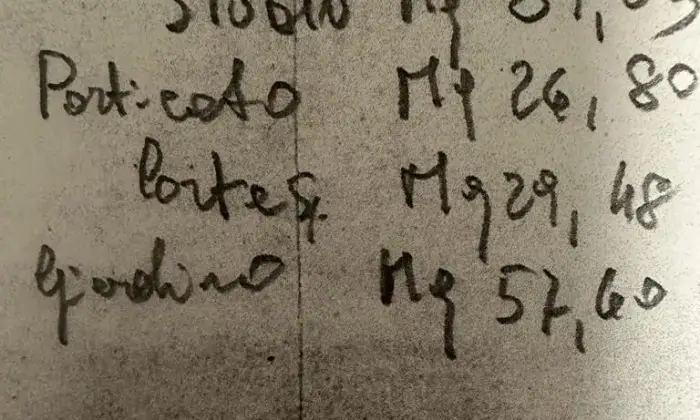 Mq
Porticato Mq 26,80
Corte Mq 29,48
Giardino Mq 57,60